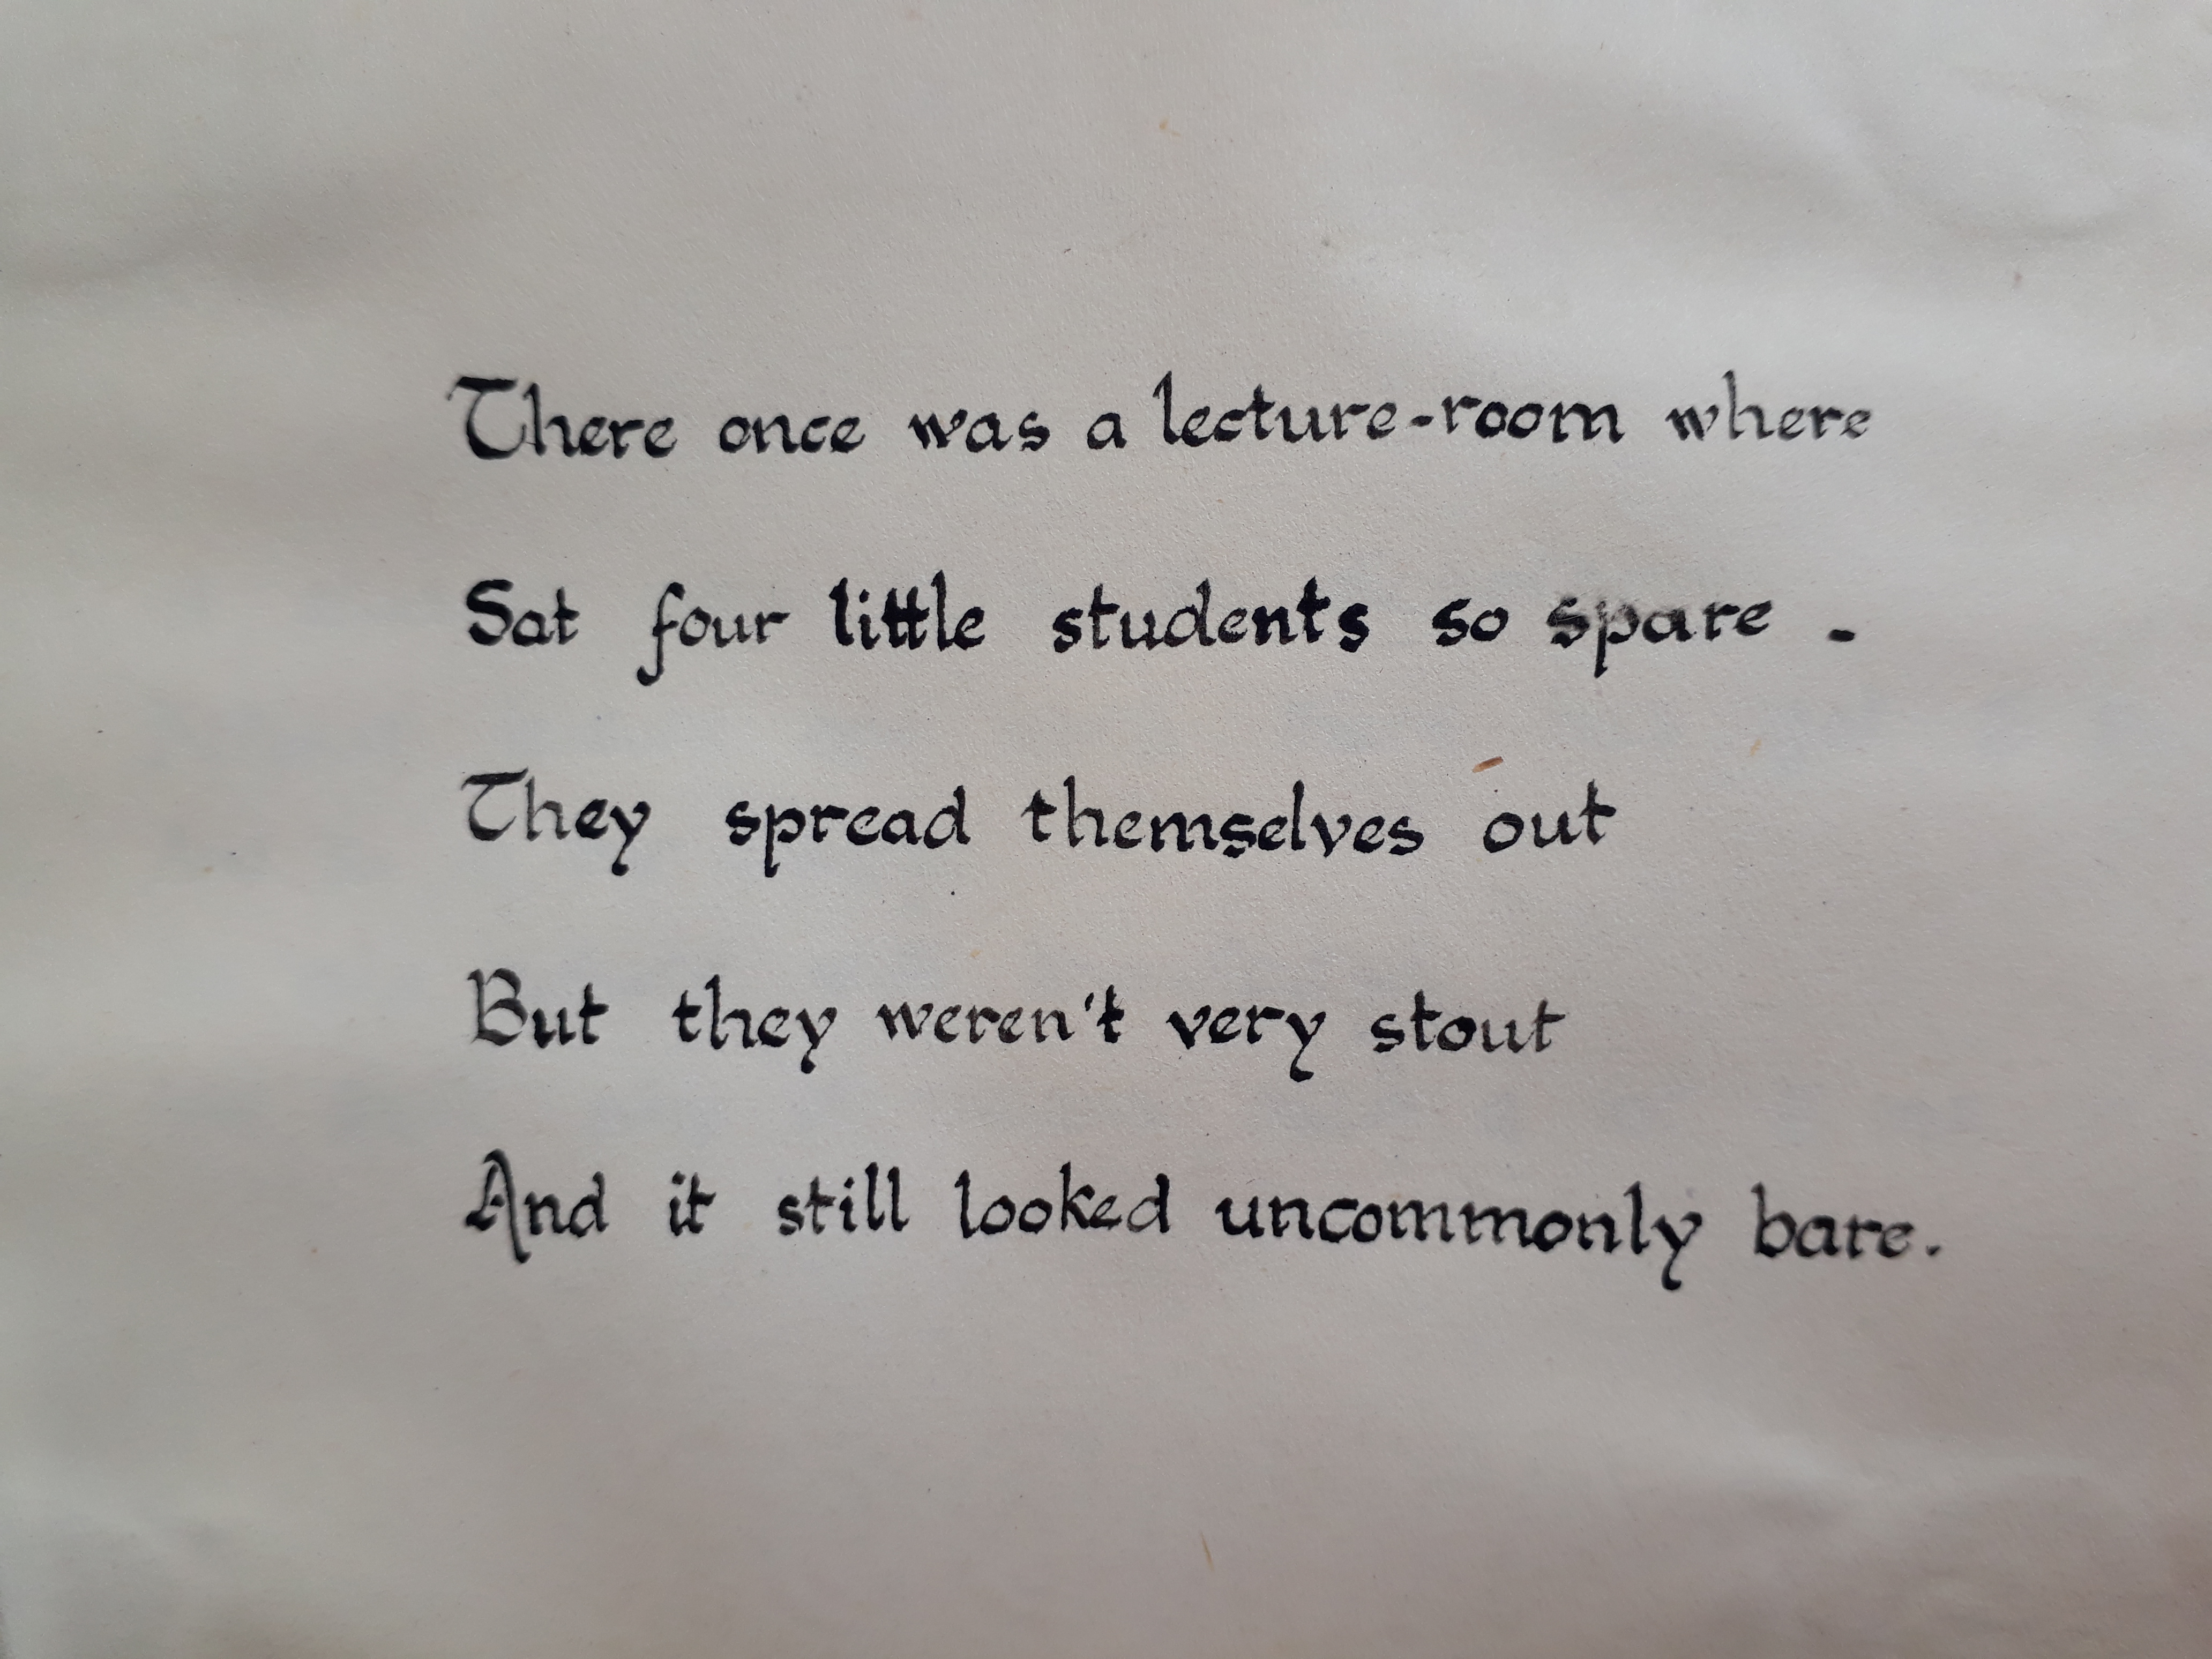 There once was a lecture-room where
Sat four little students so spare -
They spread themselves out
But they weren't very stout
And it still looked uncommonly bare.